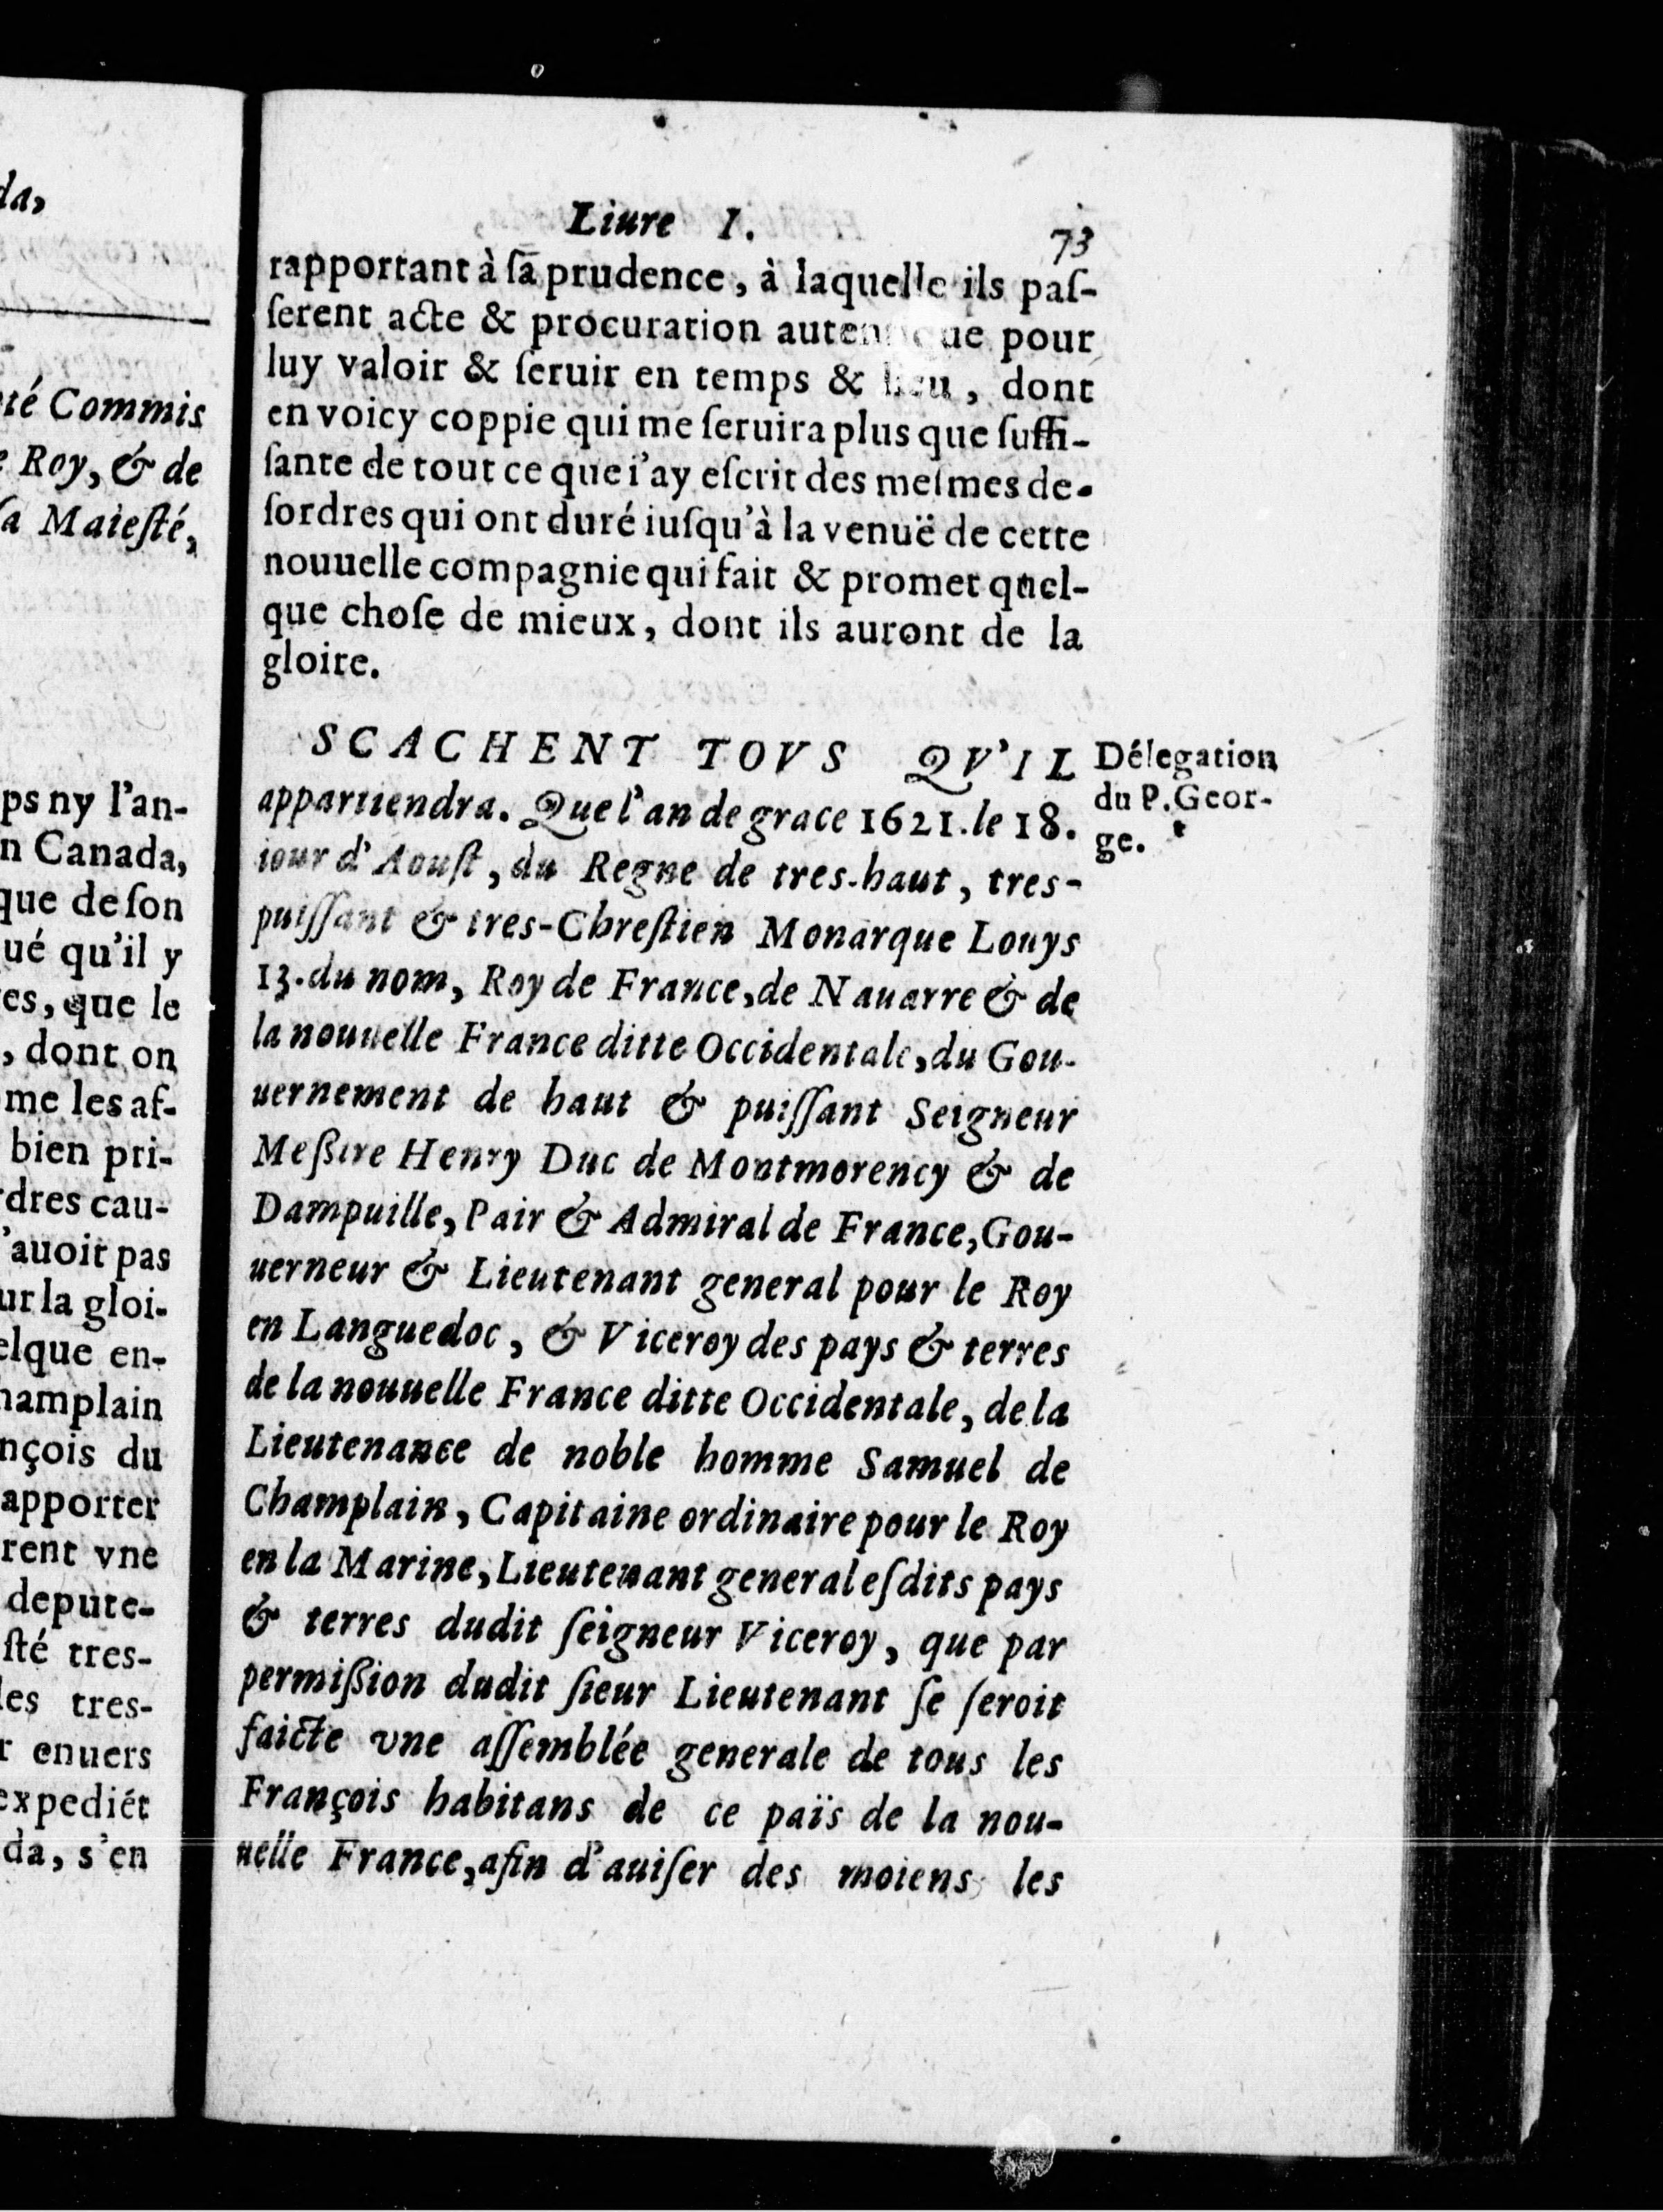 da,
té Commis
e Roy, & de
ſa Maieſté,
ps ny l'an-
n Canada,
que de ſon
ué qu'il y
es, que le
, dont on
me les af-
bien pri-
rdres cau-
'auoit pas
ur la gloi-
elque en-
hamplain
nçois du
apporter
rent vne
depute-
ſté tres-
les tres-
r enuers
expediét
da, s'en
Liure I. 73
rapportant à ſa prudence, à laquelle ils paſ-
ſerent acte & procuration autentique pour
luy valoir & ſeruir en temps & lieu, dont
en voicy coppie qui me ſeruira plus que ſuffi-
ſante de tout ce que i'ay eſcrit des meſmes de-
ſordres qui ont duré iuſqu'à la venuë de cette
nouuelle compagnie qui fait & promet quel-
que choſe de mieux, dont ils auront de la
gloire.
SCACHENT TOVS QV'IL
appartiendra. Que l'an de grace 1621. le 18.
iour d'Aouſt, du Regne de tres-haut, tres-
puiſſant & tres-Chreſtien Monarque Louys
13. du nom, Roy de France, de Nauarre & de
la nouuelle France ditte Occidentale, du Gou-
uernement de haut & puiſſant Seigneur
Meßire Henry Duc de Montmorency & de
Dampuille, Pair & Admiral de France, Gou-
uerneur & Lieutenant general pour le Roy
en Languedoc, & Viceroy des pays & terres
de la nouuelle France ditte Occidentale, de la
Lieutenance de noble homme Samuel de
Champlain, Capitaine ordinaire pour le Roy
en la Marine, Lieutenant general eſdits pays
& terres dudit ſeigneur Viceroy, que par
permißion dudit ſieur Lieutenant ſe ſeroit
faicte vne aſſemblée generale de tous les
François habitans de ce païs de la nou-
uelle France, afin d'auiſer des moiens les
Délegation
du P. Geor-
ge.